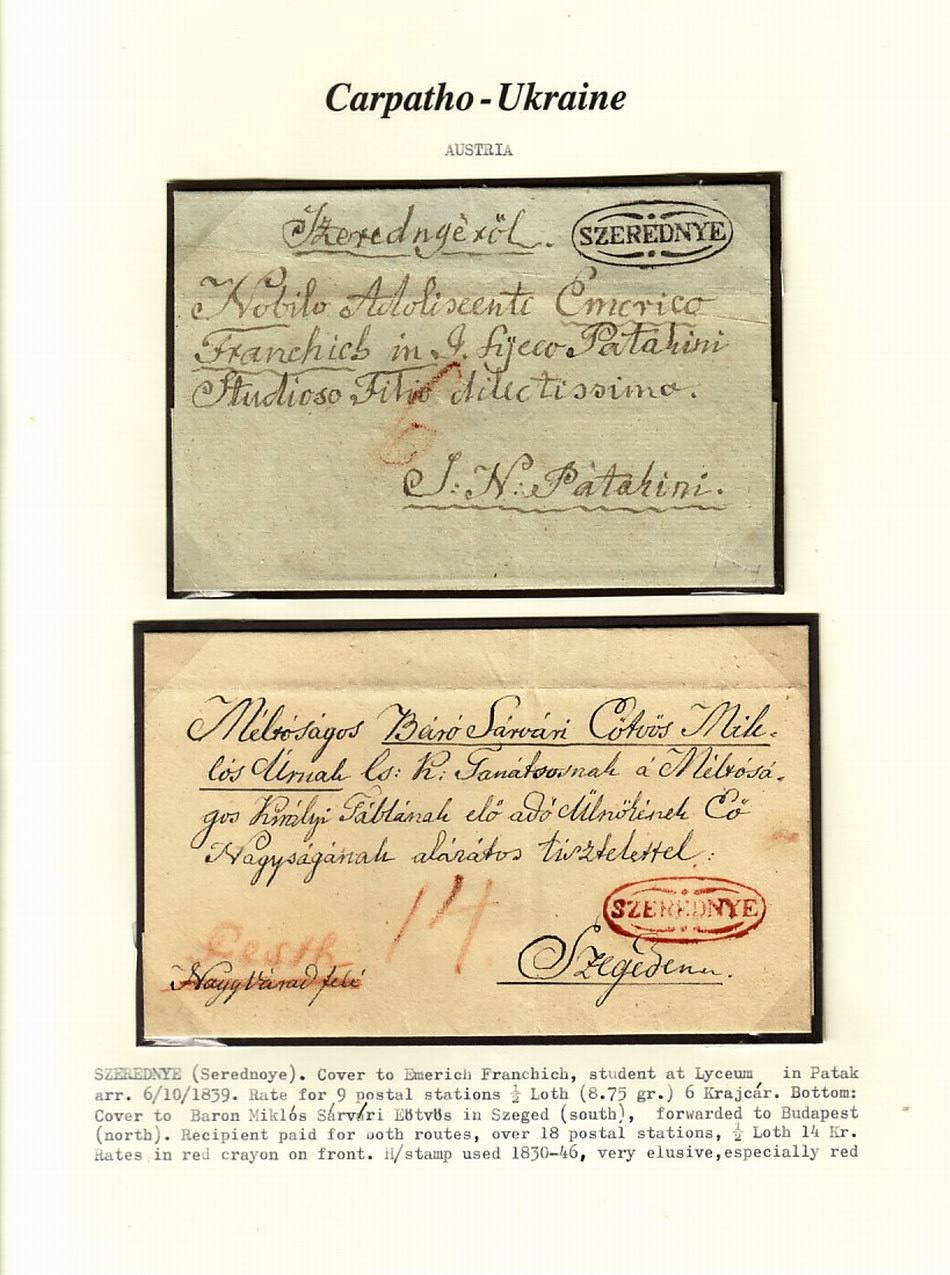 Carpatho-Ukraine
AUSTRIA
Szerednyéről.
SZEREDNYE
Nobilo Adoliseente Emerico
Franchich in I. Lyceo Patakini
Studioso Filio dilectissimo.
6
S: N: Patakini.
Méltóságos Báró Sárvári Eötvös Mik-
lós Úrnak Cs: K: Tanátsosnak á Méltósá-
gos Királyi Táblának elő adó Ülnökének Eő
Nagyságának alázatos tisztelettel:
14
SZEREDNYE
Pesth
Szegeden
Nagy Várad felé
SZEREDNYE (Serednoye). Cover to Emerich Franchich, student at Lyceum, in Patak
arr. 6/10/1839. Rate for 9 postal stations ½ Loth (8.75 gr.) 6 Krajcár. Bottom:
Cover to Baron Miklós Sárvári Eötvös in Szeged (south), forwarded to Budapest
(north). Recipient paid for both routes, over 18 postal stations, ½ Loth 14 Kr.
Rates in red crayon on front. H/stamp used 1830-46, very elusive,especially red